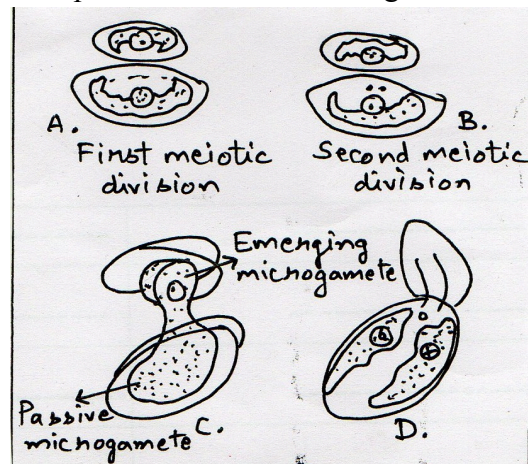 A.
First meiotic
division
B.
Second meiotic
division
Emerging
microgamete
Passive
microgamete
C.
D.